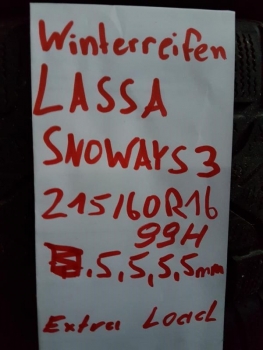 Winterreifen
LASSA
SNOWAYS 3
215/60R16
99H
.5,5,5,5mm
Extra Load